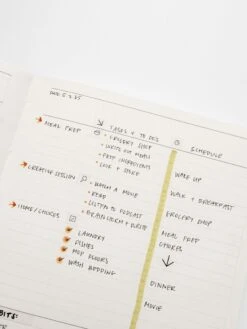 TASKS + TO DO'S
SCHEDULE
MEAL PREP
GROCERY SHOP
WRITE OUT MENU
PREP INGREDIENTS
COOK + STORE
CREATIVE SESSION
WATCH A MOVIE
READ
LISTEN TO PODCAST
BRAINSTORM + WRITE
HOME/CHORES
LAUNDRY
DISHES
MOP FLOORS
WASH BEDDING
WAKE UP
WALK + BREAKFAST
GROCERY SHOP
MEAL PREP
CHORES
DINNER
MOVIE